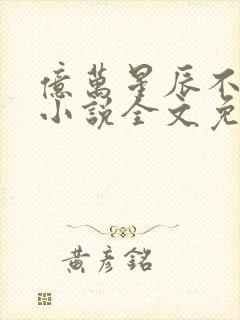 億萬星辰不
小說全文免
黃彥銘